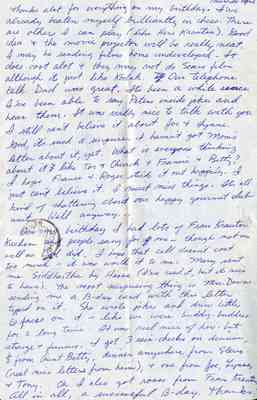 thanks alot for everything on my birthday. I've
already beaten myself brilliantly in chess. There
are others I can play (like Ken Krantin). Good
idea & the movie projector will be really neat.
I may be sending films home undeveloped. So
does alot & they may not do some film
although it just like Kodak. Our telephone
talk Dad was great. It's been a while since
I've been able to say Peter's inside jokes and
hear them. It was really nice to talk with you
I still can't believe it about Joe & Lynne.
God, it's such a surprise. I haven't got Mom's
letter about it, yet. What is everyone thinking
about it? Like Tor & Chuck & Francie & Betty?
I hope Francie & Roger take it out happily. I
just can't believe it. I must miss things. It's all
kind of shattering about our happy gourmet debut
aunt. Well anyway.
On my birthday I had lots of Fran Krantin
Kuchen and people sang for me - though not as
well as did. I hope that all doesn't cost
too much, it was worth it to me. Mary sent
me Siddhartha by Hesse (I've read it, but it's nice
to have). The most surprising thing is Mrs. Downs
sending me a B-day card with this letter
typed on it. She wrote jokes and drew little
faces on it - like we were buddy-buddies
for a long time. It was real nice of her. but
strange & funny. I got 3 rain-checks on dinner.
$ from Aunt Betty, dinner anywhere from Steve
(real nice letters from him), & one from Joe, Lynne,
& Tony. Oh I also got roses from Fran Krantin
All in all, a successful B-day. Thanks